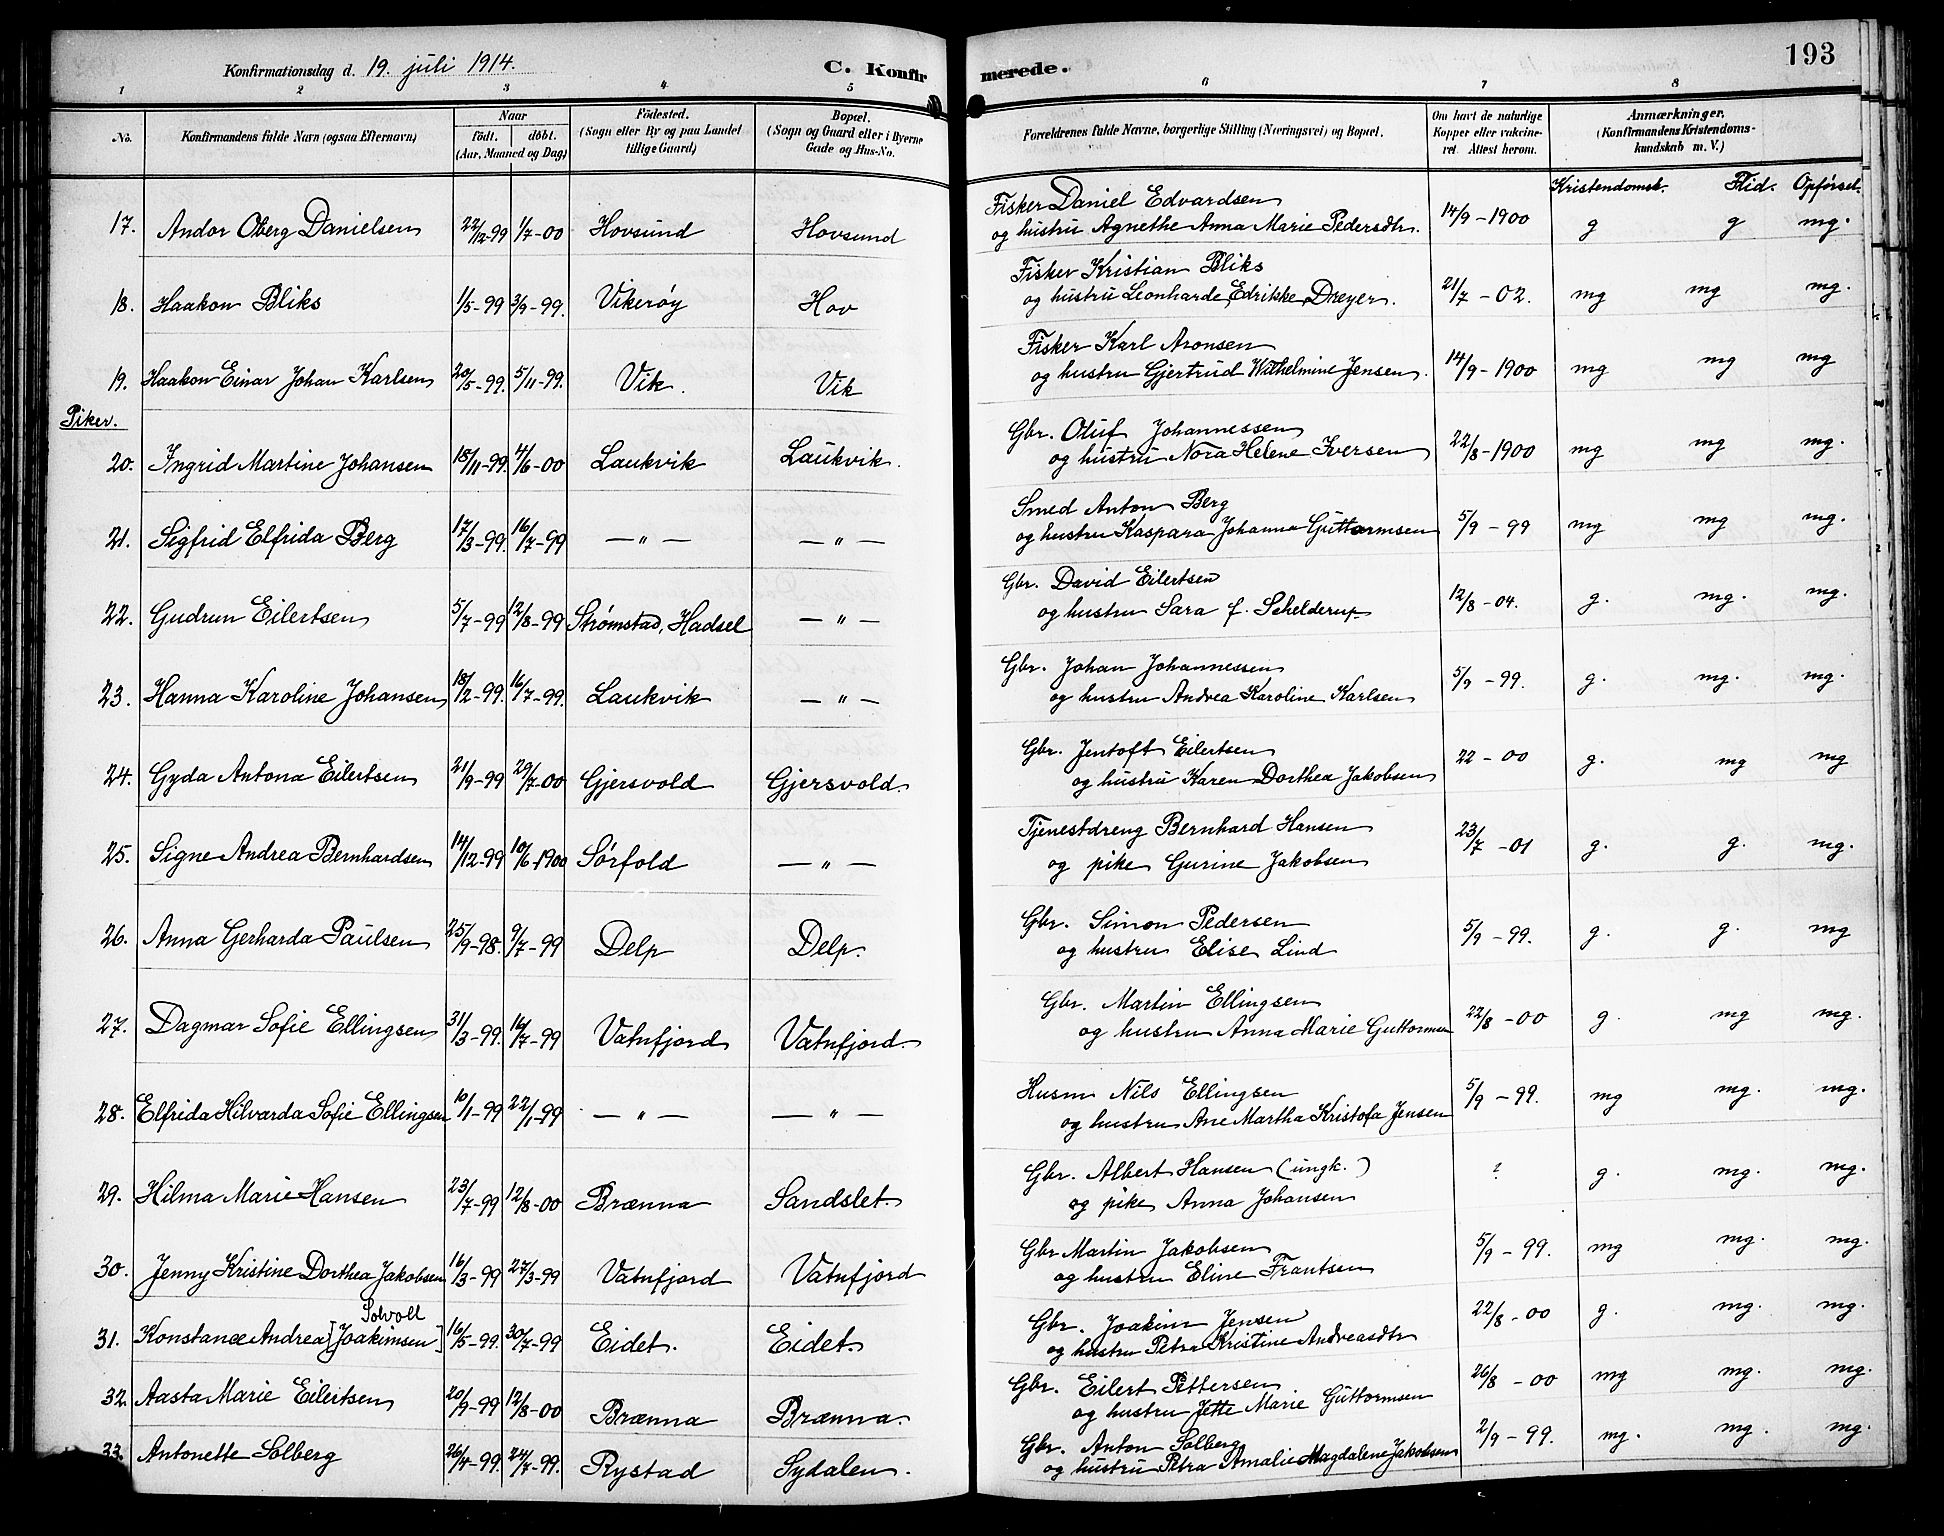 Konfirmationsdag d. 19. juli 1914. C. Konfirmerede. 193
1 2 3 4 5 6 7 8
No. Konfirmandens fulde Navn (ogsaa Efternavn) Naar födt. döbt. (Aar, Maaned og Dag) Födested. (Sogn eller By og paa Landet tillige Gaard) Bopæl. (Sogn og Gaard eller i Byerne Gade og Hus-No. Forældrenes fulde Navne, borgerlige Stilling (Næringsvei) og Bopæl. Om havt de naturlige Kopper eller vakcineret. Attest herom. Anmærkninger, (Konfirmandens Kristendomskundskab m. V.)
Kristendomsk. Flid. Opførsel.
17. Andor Oberg Danielsen 22/12-99 1/7-00 Hovsund Hovsund Fisker Daniel Edvardsen 14/9-1900 g g mg.
og hustru Agnethe Anna Marie Pedersdtr.
18. Haakon Bliks 1/5-99 3/9-99. Vikerøy Hov Fisker Kristian Bliks 21/7-02. mg mg mg.
og hustru Leonharde Edrikke Dreyer.
19. Haakon Einar Johan Karlsen 20/5-99. 5/11-99. Vik. Vik Fisker Karl Aronsen 14/9-1900 mg mg mg
og hustru Gjertrud Wilhelmine Jensen.
Piker.
20. Ingrid Martine Johansen 18/11-99. 4/6-00 Laukvik Laukvik. Gbr. Oluf Johannessen 22/8-1900 mg mg mg.
og hustru Nora Helene Iversen
21. Sigfrid Elfrida Berg 17/3-99. 16/7-99 — " — — " — Smed Anton Berg 5/9-99 mg mg mg.
og hustru Kaspara Johanna Guttormsen
22. Gudrun Eilertsen 5/7-99 12/8-99 Strømstad, Hadsel — " — Gbr. David Eilertsen 12/8-04. g. mg. mg.
og hustru Sara f. Schelderup
23. Hanna Karoline Johansen 18/2-99. 16/7-99. Laukvik — " — Gbr. Johan Johannessen 5/9-99. g. mg. mg.
og hustru Andrea Karoline Karlsen
24. Gyda Antona Eilertsen 21/9-99 29/7-00 Gjersvold Gjersvold. Gbr. Jentoft Eilertsen 22-00 g. mg mg
og hustru Karen Dorthea Jakobsen
25. Signe Andrea Bernhardsen 14/12-99 10/6-1900 Sørfold — " — Tjenestdreng Bernhard Hansen 23/7-01 g. g. mg.
og pike Gurine Jakobsen
26. Anna Gerharda Paulsen 25/9-98. 9/7-99 Delp Delp. Gbr. Simon Pedersen 5/9-99. g. g. mg
og hustru Elise Lind
27. Dagmar Sofie Ellingsen 31/3-99. 16/7-99 Vatnfjord Vatnfjord. Gbr. Martin Ellingsen 22/8-00 g. mg mg.
og hustru Anna Marie Guttormsen
28. Elfrida Hilvarda Sofie Ellingsen 10/1-99 22/1-99 — " — — " — Husm Nils Ellingsen 5/9-99. mg mg. mg.
og hustru Ane Martha Kristofa Jensen
29. Hilma Marie Hansen 23/7-99 12/8-00 Brænna Sandslet. Gbr. Albert Hansen (ungk.) ? g. mg. mg.
og pike Anna Johansen
30. Jenny Kristine Dorthea Jakobsen 16/3-99 27/3-99 Vatnfjord Vatnfjord Gbr Martin Jakobsen 5/9-99. mg mg. mg.
og hustru Eline Frantsen
Solvoll
31. Konstance Andrea [Joakimsen] 16/5-99. 30/7-99 Eidet. Eidet. Gbr. Joakim Jensen 22/8-00 g. mg. mg.
og hustru Petra Kristine Andreasdtr
32. Aasta Marie Eilertsen 20/9-99 12/8-00 Brænna Brænna. Gbr. Eilert Pettersen 26/8-00 mg mg. mg.
og hustru Jette Marie Guttormsen
33. Antonette Solberg 26/4-99. 24/7-99. Rystad Sydalen. Gbr. Anton Solberg 2/9-99. mg. mg. mg.
og hustru Petra Amalie Magdalene Jakobsen